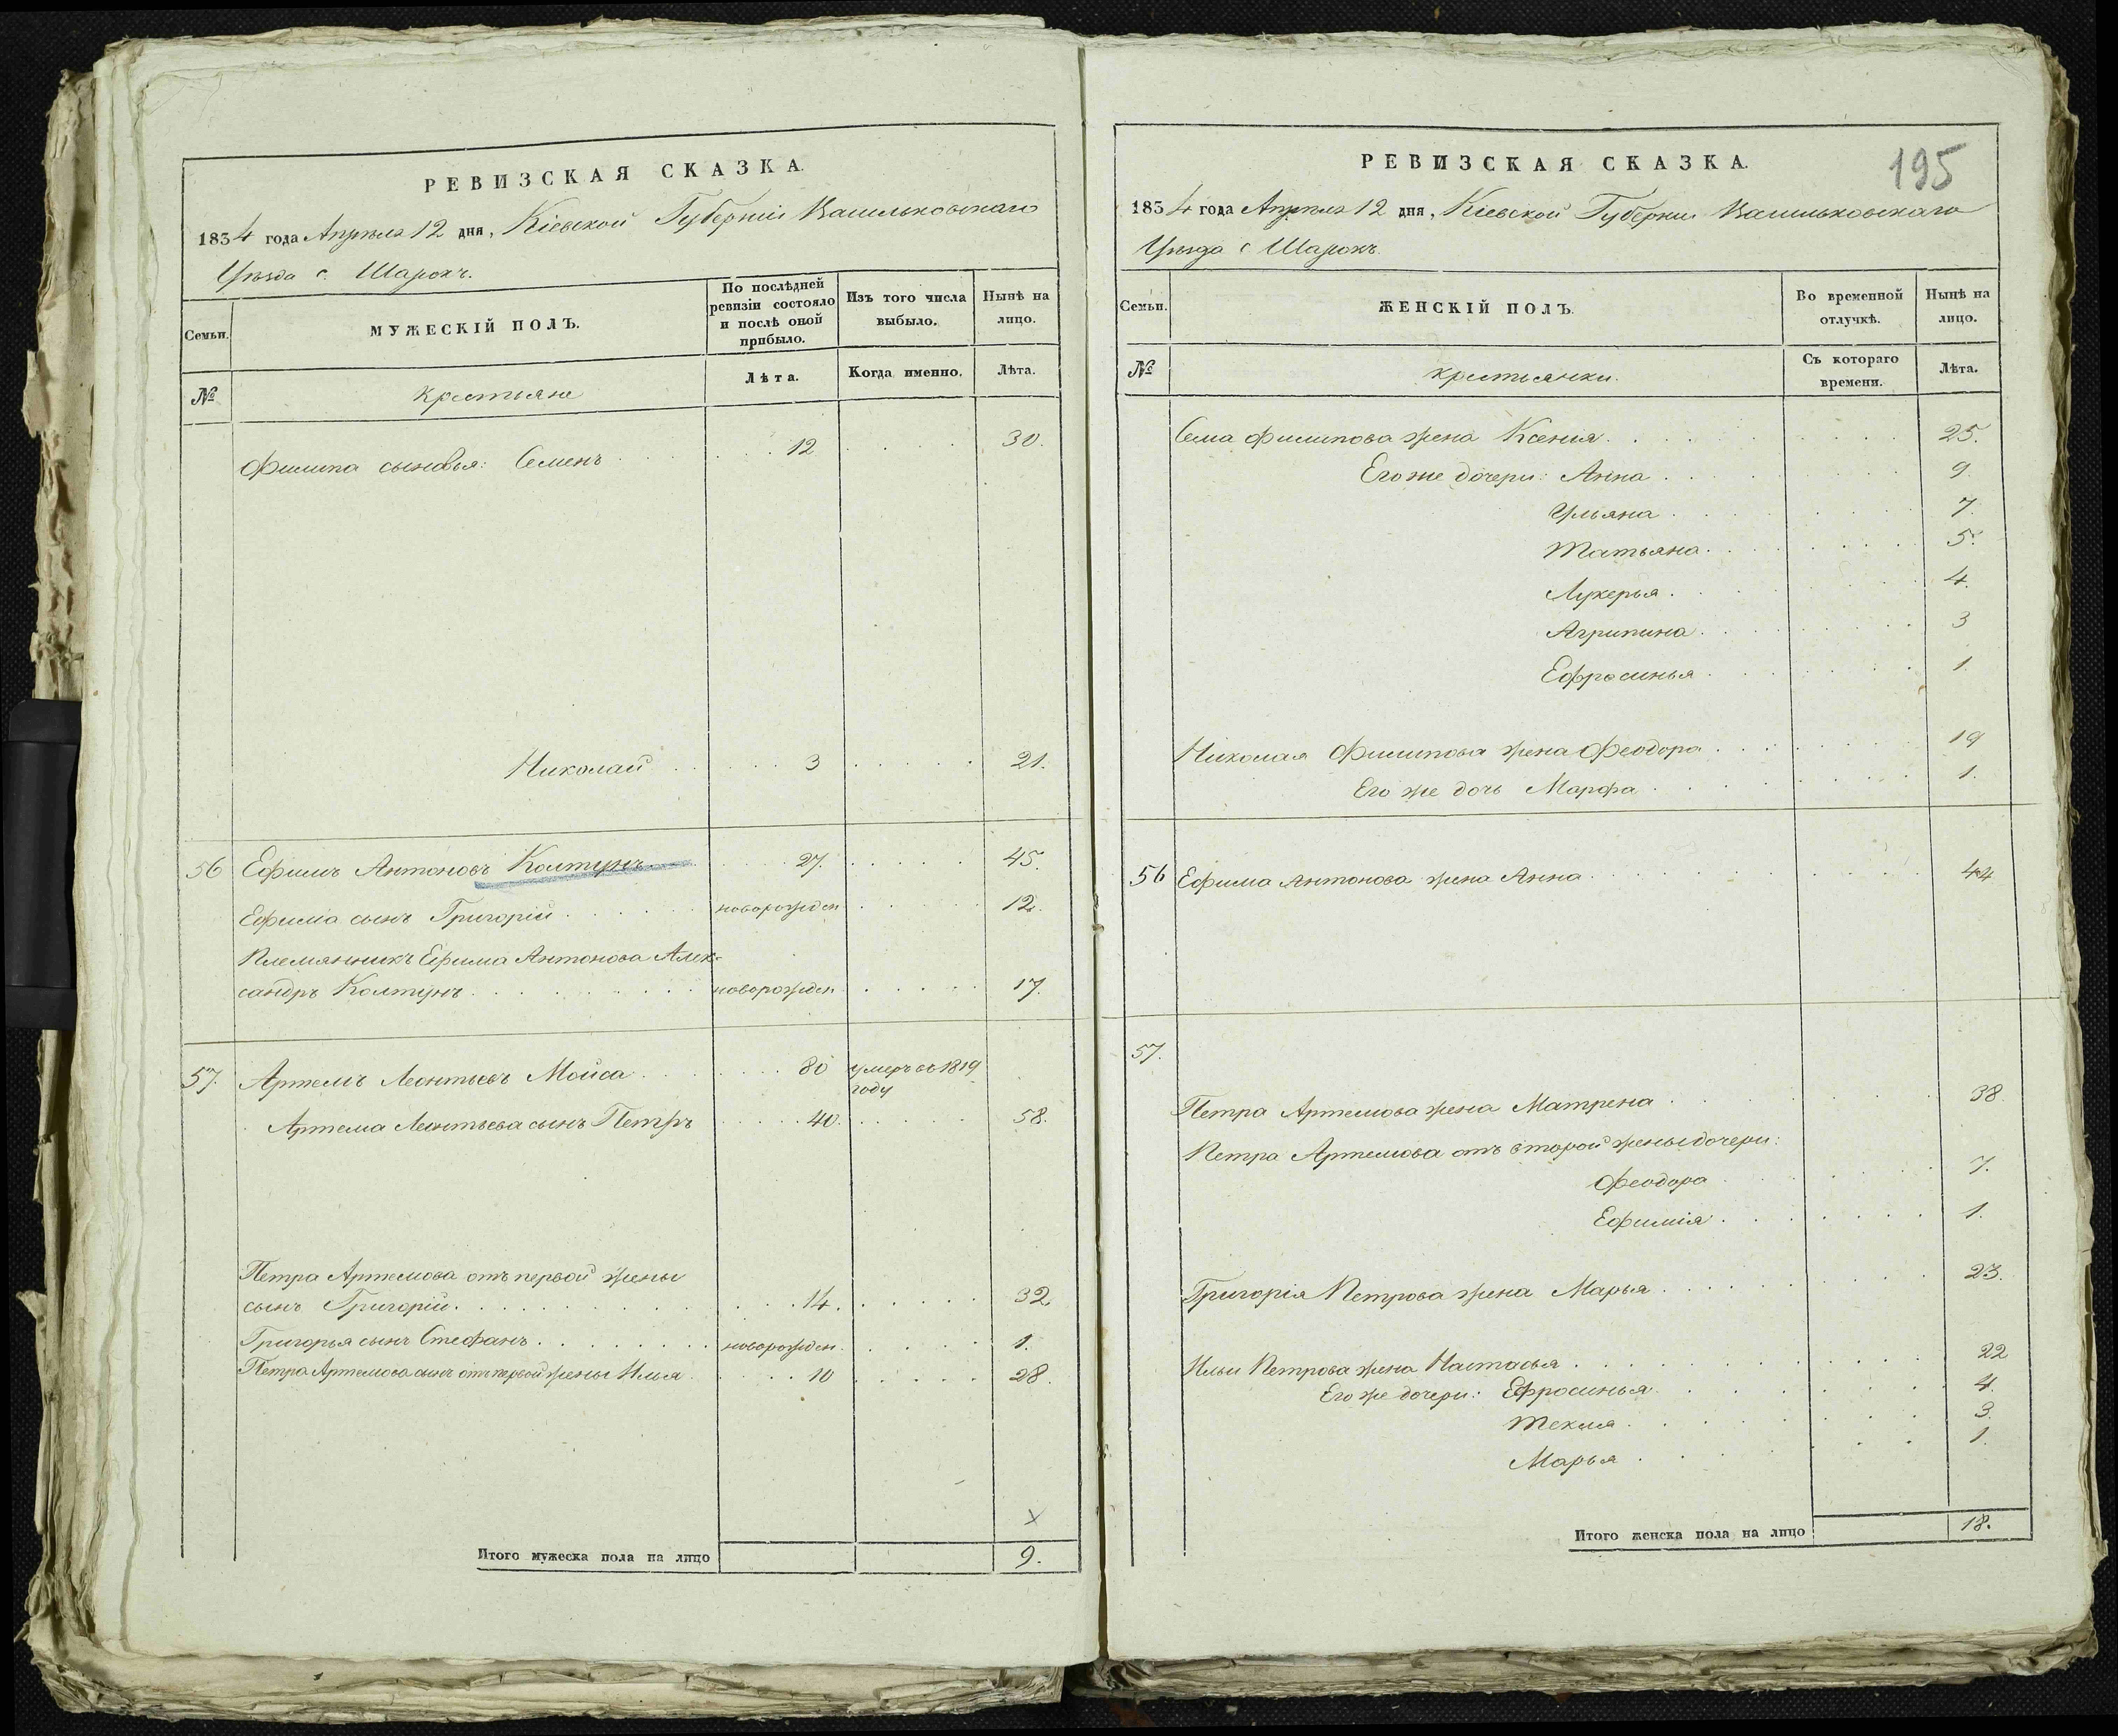 РЕВИЗСКАЯ СКАЗКА.
1834 года Апрѣля 12 дня, Кіевской Губерніи Васильковскаго
Уѣзда с. Шарокъ.
Семьи.
МУЖЕСКІЙ ПОЛЪ.
По послѣдней ревизіи состояло и послѣ оной прибыло.
Изъ того числа выбыло.
Нынѣ на лицо.
№
Крестьяне
Лѣта.
Когда именно.
Лѣта.
Филипа сыновья: Семенъ 12 30.
Николай 3 21.
56 Ефимъ Антоновъ Колтунъ 27. 45
Ефима сынъ Григорій новорожден 12.
Племянникъ Ефима Антонова Алек-
сандръ Колтунъ новорожден 17.
57. Артемъ Леонтьевъ Мойса 80 умеръ въ 1819
году
Артема Леонтьева сынъ Петръ 40. 58.
Петра Артемова отъ первой жены
сынъ Григорій. 14. 32.
Григорья сынъ Стефанъ. новорожден. 1.
Петра Артемова сынъ отъ первой жены Илья 10 28.
Х
Итого мужеска пола на лицо 9.
195
РЕВИЗСКАЯ СКАЗКА.
1834 года Апрѣля 12 дня, Кіевской Губерніи Васильковскаго
Уѣзда с Шарокъ.
Семьи.
ЖЕНСКІЙ ПОЛЪ.
Во временной отлучкѣ.
Нынѣ на лицо.
№
Крестьянки.
Съ котораго времени.
Лѣта.
Сема Филипова жена Ксения. 25.
Его же дочери: Анна 9.
Ульяна 7.
Татьяна. 5.
Лукерья. 4.
Агрипина. 3
Ефросинья 1.
Николая Филипова жена Феодора 19
Его же дочь Марфа 1.
56 Ефима Антонова жена Анна 44
57.
Петра Артемова жена Матрена 38.
Петра Артемова отъ второй жены дочери:
Феодора 7.
Ефимія 1.
Григорія Петрова жена Марья 23.
Ильи Петрова жена Настасья 22
Его же дочери: Ефросинья. 4.
Текля 3.
Марья 1.
Итого женска пола на лицо 18.